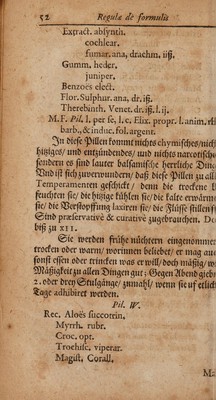 52 Regulæ de formulis
Extract. absynth.
cochlear.
fumar. ana, drachm. iiß.
Gumm. heder.
juniper.
Benzoes elect.
Flor. Sulphur. ana, dr. iß.
Therebinth. Venet. dr. iß. l. ij.
M. F. Pil. l. per se, l. c. Elix. propr. l. anim. rh
barb., & induc. fol. argent.
In diese Pillen kommt nichts chymisches/ nich
hitziges/ und entzündendes/ und nichts narcotische
sondern es sind lauter balsamische herrliche Din
Und ist sich zuverwundern/ daß diese Pillen zu alle
Temperamenten geschickt/ denn die trockene
feuchten sie/ die hitzige kühlen sie/ die kalte erwärm
sie/ die Verstopffung laxiren sie/ die Flüsse stillen
Sind præservativè & curative zugebrauchen. Do
biß zu XII.
Sie werden frühe nüchtern eingenomme
trocken oder warm/ worinnen beliebet/ er mag auc
sonst essen oder trincken was er will/ doch mäßig/ w
Mäßigkeit zu allen Dingen gut; Gegen Abend gieb
2. oder drey Stulgänge/ zumahl/ wenn sie uf etlich
Tage adhibiret werden.
Pil. W.
Rec. Aloës succotrin.
Myrrh. rubr.
Croc. opt.
Trochisc. viperar.
Magist. Corall.
M: